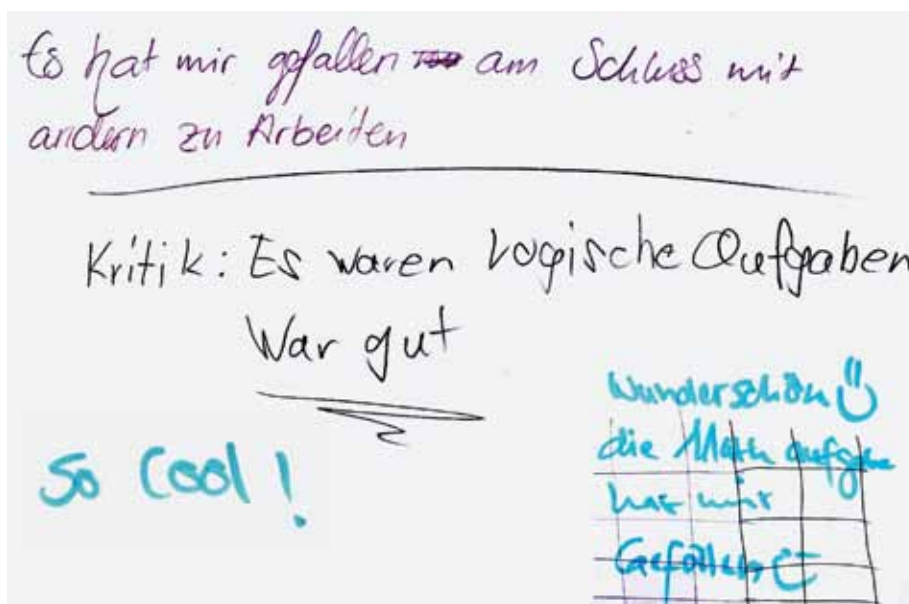 Es hat mir gefallen am Schluss mit
andern zu Arbeiten
Kritik: Es waren Logische Aufgaben
War gut
So Cool!
Wunderschön
die Math aufgabe
hat mir
Gefallen